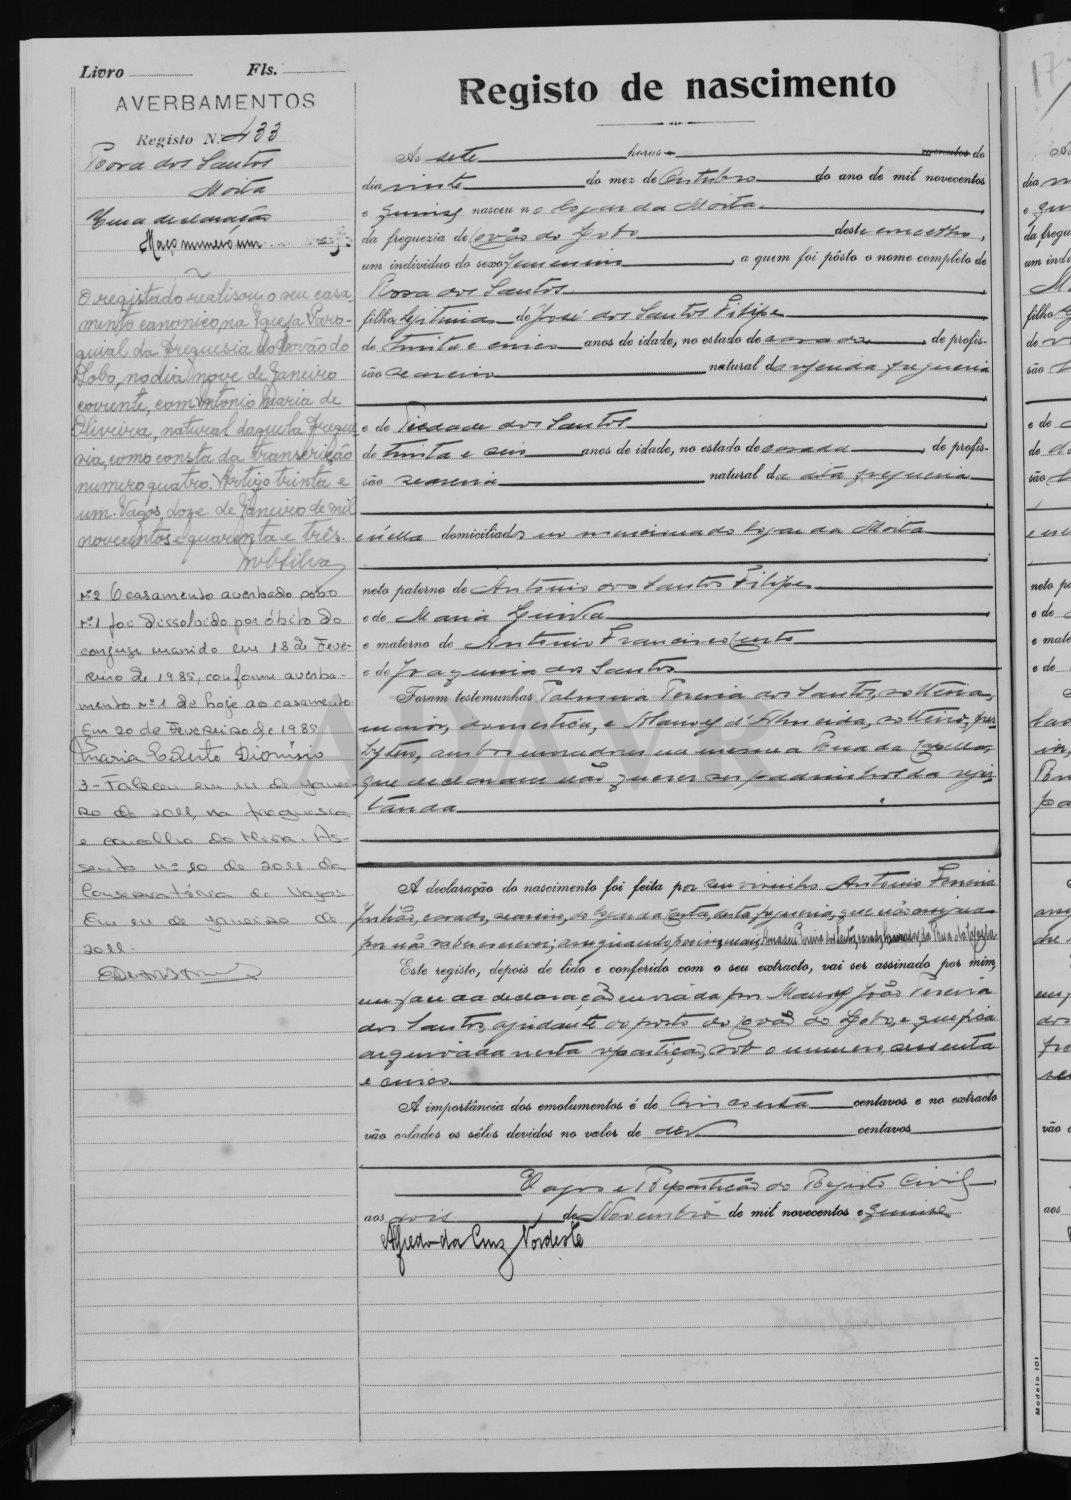 Livro Fls.
AVERBAMENTOS
Registo N.º 433
Rosa dos Santos
Moita
Uma declaração
Maço numero um
O registado realisou o seu casa
mento canonico, na Igreja Paro-
quial da freguesia do Covão do
Lobo, no dia nove de Janeiro
corrente, com Antonio Maria de
Oliveira, natural daquela fregue
sia, como consta da transcrição
numero quatro. Artigo trinta e
um. Vagos, doze de Janeiro de mil
novecentos e quarenta e três.
Nº2 O casamento averbado sob o
Nº1 foi dissolvido por óbito do
conjuge marido em 18 de Feve-
reiro de 1985, conforme averba-
mento nº1 de hoje ao casamento
Em 20 de Fevereiro de 1985
Maria Celeste Dionísio
3 - Faleceu em de Janei-
ro de 2011, na freguesia
e concelho de Mira. As-
sento nº 10 de 2011 da
Conservatória de Vagos
Em de Janeiro de
2011.
Registo de nascimento
Ás sete horas e minutos do
dia vinte do mez de Outubro do ano de mil novecentos
e quinse nasceu no logar da Moita
da freguezia de Covão do Lobo deste concelho,
um individuo do sexo femenino, a quem foi pôsto o nome completo de
Rosa dos Santos
filha legitima de José dos Santos Filipe
de trinta e cinco anos de idade, no estado de casado, de profis-
são seareiro natural da referida freguesia
e de Piedade dos Santos
de trinta e seis anos de idade, no estado de casada, de profis-
são seareira natural da dita freguesia
e n'ella domiciliados no mencionado logar da Moita
neto paterno de Antonio dos Santos Filipe
e de Maria
e materno de Antonio Francisco Certo
e de Joaquina dos Santos
Foram testemunhas Palmira Pereira dos Santos, solteira,
maior, domestica, e Manoel d'Almeida, solteiro, pres
bytero, ambos moradores na mesma Rua da Capella,
que declararam não querer ser padrinhos da regis-
tanda
A declaração do nascimento foi feita por seu visinho Antonio Ferreira
casado, seareiro, do logar da Certa, desta freguesia, que não assigna
por não saber escrever; assignando
Este registo, depois de lido e conferido com o seu extracto, vai ser assinado por mim,
em face da declaração enviada por Manoel João Pereira
dos Santos, ajudante do posto do Covão do Lobo, e que fica
arquivada nesta repartição, sob o numero sessenta
e cinco
A importância dos emolumentos é de Cincoenta centavos e no extracto
vão colados os sêlos devidos no valor de dez centavos
Vagos e Repartição do Registo Civil,
aos dois de Novembro de mil novecentos e quinse
Alfredo da Cruz Nordeste
ADAVR
Modelo 101